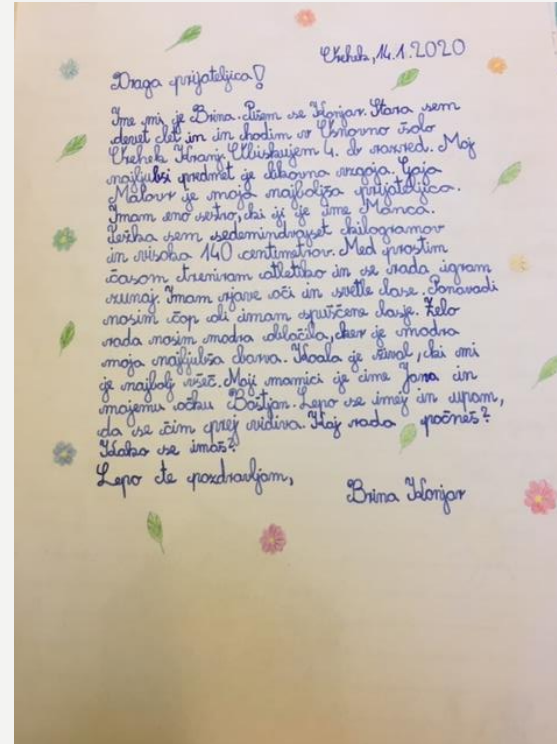 Orehek, 14.1.2020
Draga prijateljica!
Ime mi je Brina. Pišem se Konjar. Stara sem
devet let in in hodim v Osnovno šolo
Orehek Kranj. Obiskujem 4. b razred. Moj
najljubši predmet je likovna vzgoja. Gaja
Malovr je moja najboljša prijateljica.
Imam eno sestro, ki ji je ime Manca.
Težka sem sedemindvajset kilogramov
in visoka 140 centimetrov. Med prostim
časom treniram atletiko in se rada igram
zunaj. Imam rjave oči in svetle lase. Ponavadi
nosim čop ali imam spuščene lasje. Zelo
rada nosim modra oblačila, ker je modra
moja najljubša barva. Koala je žival, ki mi
je najbolj všeč. Moji mamici je ime Jana in
mojemu očku Boštjan. Lepo se imej in upam,
da se čim prej vidiva. Kaj rada počneš?
Kako se imaš?
Lepo te pozdravljam,
Brina Konjar